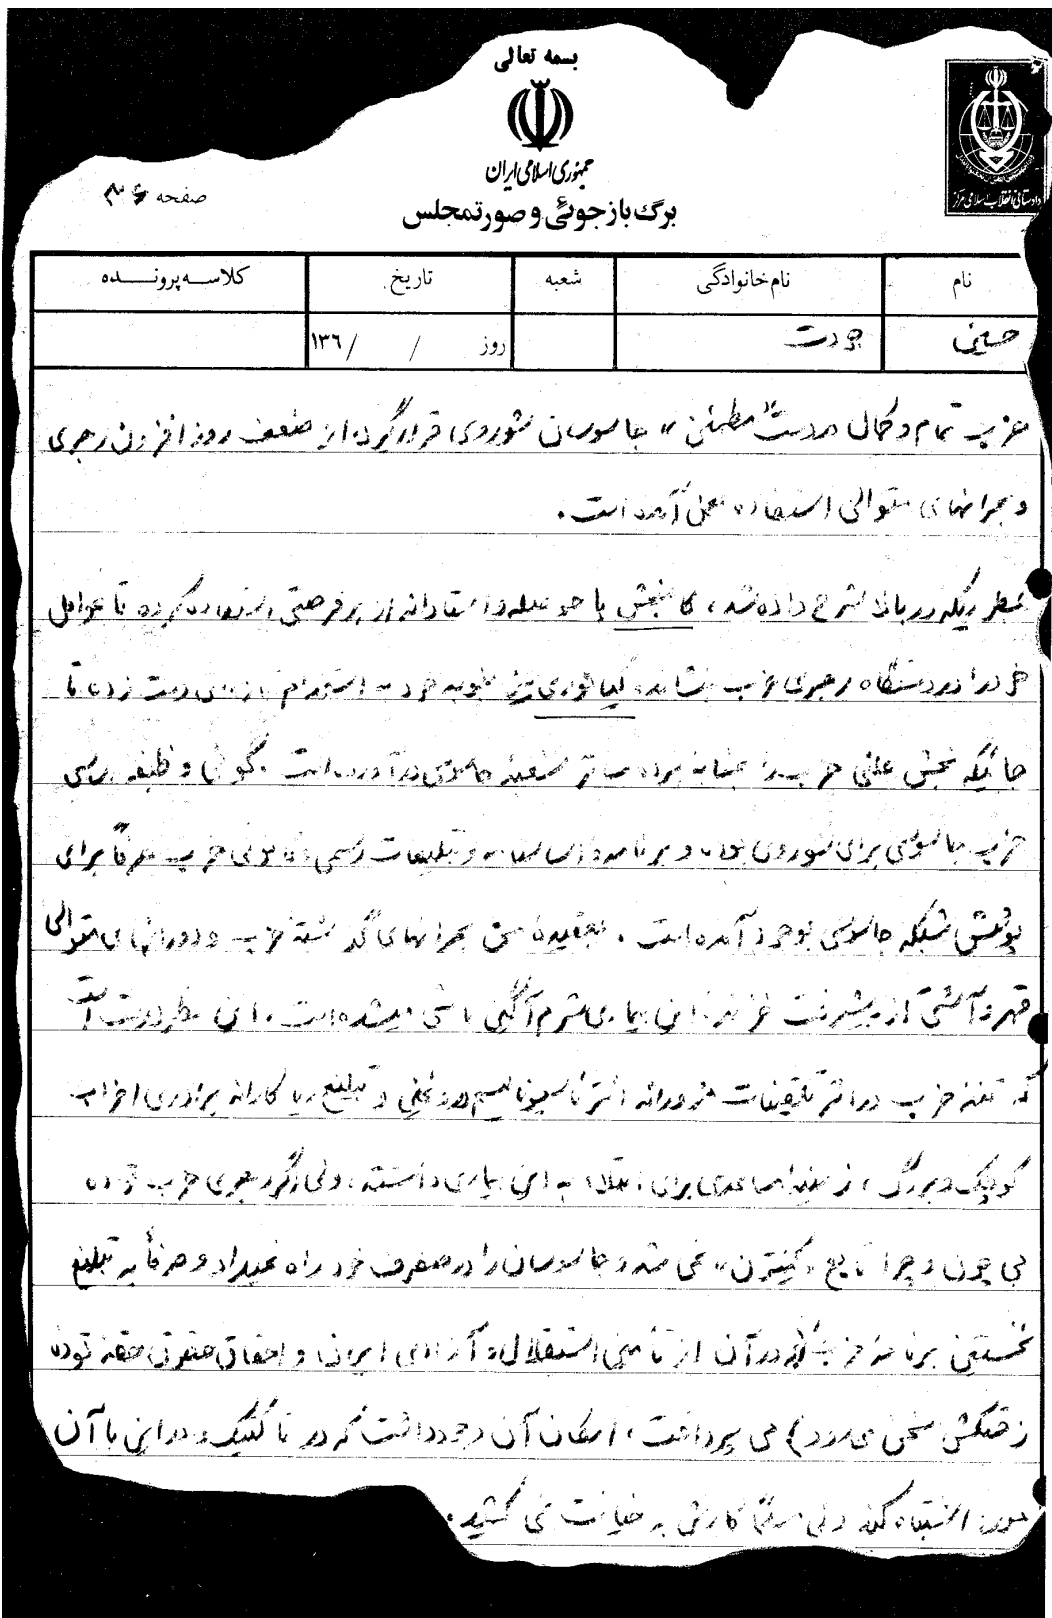 بسمه تعالی
جمهوری اسلامی ایران
دادستانی انقلاب اسلامی مرکز
صفحه ۳۶
برگ بازجوئی و صورتمجلس
نام نام خانوادگی شعبه تاریخ کلاسه پرونده
حسین جودت روز / / ۱۳۶
حزب تمام و کمال در دست "مطمئن" جاسوسان شوروی قرار گیرد، از ضعف روز افزون رهبری
و بحرانهای متوالی استفاده بعمل آمده است.
بطوریکه در بالا شرح داده شد، کامبخش با حوصله و استادانه از هر فرصتی استفاده کرده تا عوامل
خود را در دستگاه رهبری حزب بنشاند، کیانوری نیز بنوبه خود به استخدام دست زده تا
جائیکه بخش علنی حزب را بمثابه جاسوسی در آورده است. گوئی وظیفه
حزب جاسوسی برای شوروی بوده و برنامه و اساسنامه و تبلیغات رسمی و قانونی حزب صرفاً برای
پوشش شبکه جاسوسی بوجود آمده است. بعقیده من بحرانهای گذشته حزب و دورانهای متوالی
قهر و آشتی از پیشرفت این بیماری شرم آگین ناشی میشده است. این نظر درست است
که تنه حزب در اثر تلقینات مزورانه انترناسیونالیسم دروغین و تبلیغ ریاکارانه برادری احزاب
کوچک و بزرگ، زمینه مساعدی برای ابتلاء به این بیماری داشته، ولی اگر رهبری حزب توده
بی چون و چرا تابع نمی شد و جاسوسان را در صفوف خود راه نمیداد و صرفاً به تبلیغ
نخستین برنامه حزب (که در آن از تأمین استقلال و آزادی ایران و احقاق حقوق حقه توده
زحمتکش سخن میرود) می پرداخت، امکان آن وجود داشت که در تاکتیک و در این یا آن
مورد اشتباه کند ولی مسلماً کارش به خیانت نمی کشید.